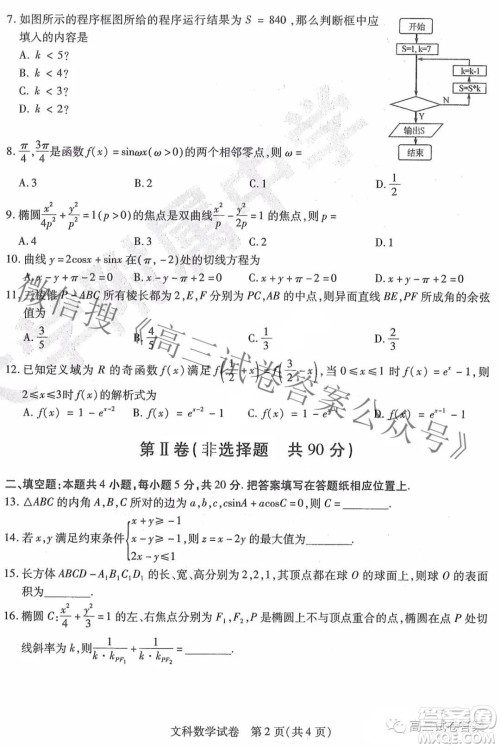 7. 如图所示的程序框图所给的程序运行结果为 S = 840，那么判断框中应
填入的内容是
A. k < 5?
B. k < 4?
C. k < 3?
D. k < 2?
开始
S=1, k=7
k=k-1
S=S*k
N
Y
输出S
结束
8. π/4, 3π/4是函数 f(x) = sinωx(ω>0)的两个相邻零点，则 ω =
A. 3 B. 2 C. 1 D. 1/2
9. 椭圆x²/4p² + y²/p² = 1(p>0)的焦点是双曲线x²/p - y²/2p = 1的焦点，则 p =
A. 4 B. 3 C. 2 D. 1
10. 曲线 y = 2cosx + sinx 在(π, -2)处的切线方程为
A. x - y + π - 2 = 0 B. x - y - π - 2 = 0 C. x + y + π - 2 = 0 D. x + y - π + 2 = 0
11. 三棱锥 P-ABC 所有棱长都为 2, E, F 分别为 PC, AB 的中点，则异面直线 BE, PF 所成角的余弦
值为
A. 3/5 B. 4/5 C. 1/3 D. 2/3
12. 已知定义域为 R 的奇函数 f(x) 满足 f(x/2 + 1/2) = f(3/2 - x/2)，当 0≤x≤1 时 f(x) = eˣ - 1，则
2≤x≤3时 f(x) 的解析式为
A. f(x) = 1 - eˣ⁻² B. f(x) = eˣ⁻² - 1 C. f(x) = 1 - eˣ D. f(x) = eˣ⁻¹
第Ⅱ卷(非选择题 共 90 分)
二、填空题：本题共 4 小题，每小题 5 分，共 20 分. 把答案填写在答题纸相应位置上.
13. △ABC 的内角 A, B, C 所对的边为 a, b, c, csinA + acosC = 0，则 C =
14. 若 x, y 满足约束条件{x + y ≥ -1
x - y ≥ -1，则 z = x - 2y 的最大值为
2x - y ≤ 1
15. 长方体 ABCD-A₁B₁C₁D₁ 的长、宽、高分别为 2, 2, 1，其顶点都在球 O 的球面上，则球 O 的表面
积为
16. 椭圆 C: x²/4 + y²/3 = 1 的左、右焦点分别为 F₁, F₂, P 是椭圆上不与顶点重合的点，椭圆在点 P 处切
线斜率为 k，则1/(k·k_PF₁) + 1/(k·k_PF₂) =
文科数学试卷 第 2 页(共 4 页)
微信搜《高三试卷答案公众号》
高三试卷答案